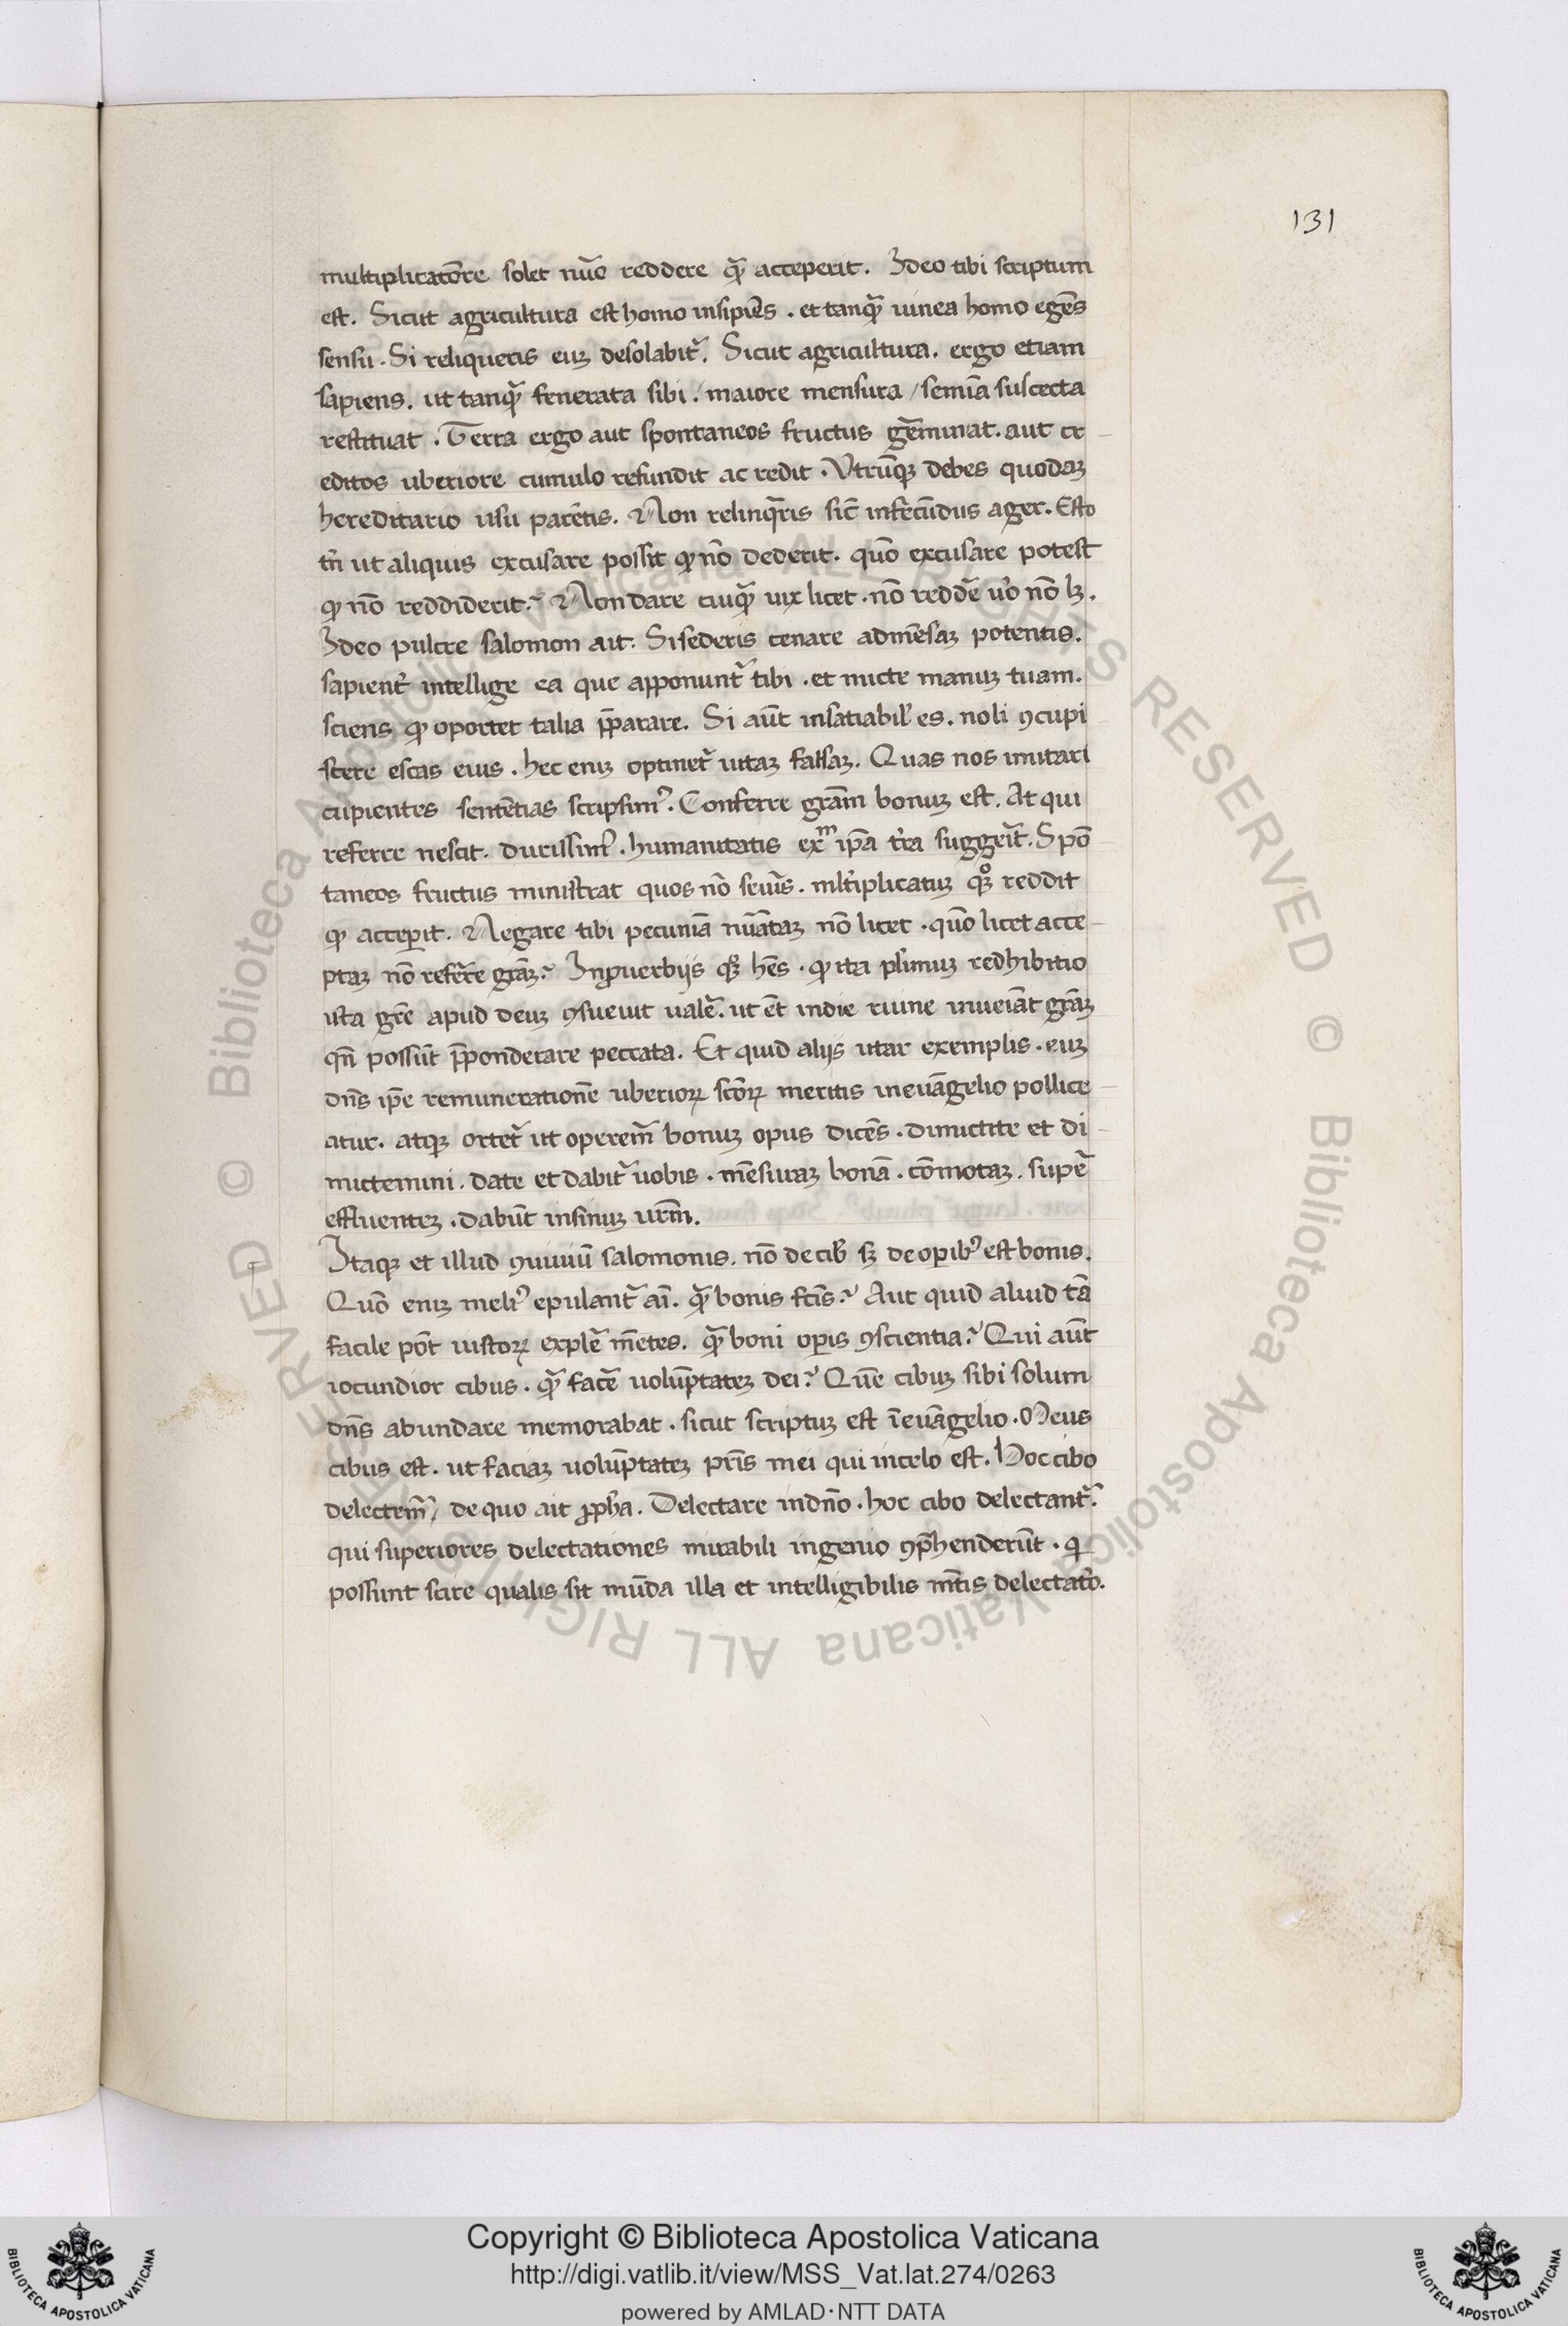 131
multiplicatōre solet nūo reddere qᷓ acceperit. Ideo tibi scriptum
est. Sicut agricultura est homo insipiēs. et tanqᷓ uinea homo egēs
sensu. Si reliqueris euꝫ desolabit᷑. Sicut agricultura. ergo etiam
sapiens. ut tanqᷓ fenerata sibi / maiore mensura / semīa suscepta
restituat. Terra ergo aut spontaneos fructus gēminat. aut cr
editos uberiore cumulo refundit ac redit. Vtrūqꝫ debes quodaꝫ
hereditario usu parētis. Non relinqᷓris sic̄ infecūdus ager. Esto
tn̄ ut aliquis excusare possit ꝙ nō dederit. quō excusare potest
ꝙ nō reddiderit? Non dare cuiqᷓ uix licet. nō reddē uo᷑ nō lꝫ.
Ideo pulcre salomon ait. Si sederis cenare ad mēsaꝫ potentis.
sapient᷑ intellige ea que apponunt᷑ tibi. et micte manuꝫ tuam.
sciens ꝙ oportet talia p̄parare. Si aūt insatiabil᷑ es. noli ꝯcupi
scere escas eius. hec eniꝫ optinet᷑ uitaꝫ falsaꝫ. Quas nos imitari
cupientes sentētias scripsimꝰ. Conferre grām bonuꝫ est. At qui
referre nescit. durissimꝰ. humanitatis exᵐ ip̄a t᷑ra suggeīt. Spō
taneos fructus ministrat quos nō seuīs. ml᷑tiplicatuꝫ qꝫͦ reddit
ꝙ acceꝑit. Negare tibi pecuniā nūātaꝫ nō licet. quō licet acce
ptaꝫ nō refērre grāꝫ? In ꝓuerbijs qꝫͦ hēs. ꝙ ita pl᷑imuꝫ redhibitio
ista grē apud deuꝫ ꝯsueuit ualē. ut ēt in die ruine inueīāt grāꝫ
qn̄ possūt p̄ponderare peccata. Et quid alijs utar exemplis. euꝫ
dn̄s ip̄e remunerationē uberioꝝ sc̄oꝝ meritis in euāgelio pollice
atur. atqꝫ ortet᷑ ut operem̄ bonuꝫ opus dicēs. dimictite et di
mictemini. date et dabit᷑ uobis. mēsuraꝫ bonā. cōmotaꝫ. supē
effluenteꝫ. dabūt in sinuꝫ ur̄m.
Itaqꝫ et illud ꝯuiuiū salomonis. nō de cib᷑ sꝫ de oꝑibꝰ est bonis.
Quō eniꝫ meliꝰ epulant᷑ aī. qᷓ bonis fc̄is? Aut quid aliud tā
facile pōt iustoꝝ explē mētes. qᷓ boni oꝑis ꝯscientia? Qui aūt
iocundior cibus. qᷓ facē uolūptateꝫ dei? Quē cibuꝫ sibi solum
dn̄s abundare memorabat. sicut scriptuꝫ est ī euāgelio. Meus
cibus est. ut faciaꝫ uolūptateꝫ pr̄is mei qui in celo est. Hoc cibo
delectem᷑ / de quo ait ꝓph̄a. Delectare in dn̄o. hoc cibo delectant᷑.
qui superiores delectationes mirabili ingenio ꝯp̄henderūt. q̇
possunt scire qualis sit mūda illa et intelligibilis mētis delectat᷑o.
Copyright © Biblioteca Apostolica Vaticana
http://digi.vatlib.it/view/MSS_Vat.lat.274/0263
powered by AMLAD·NTT DATA
BIBLIOTECA APOSTOLICA VATICANA
BIBLIOTECA APOSTOLICA VATICANA